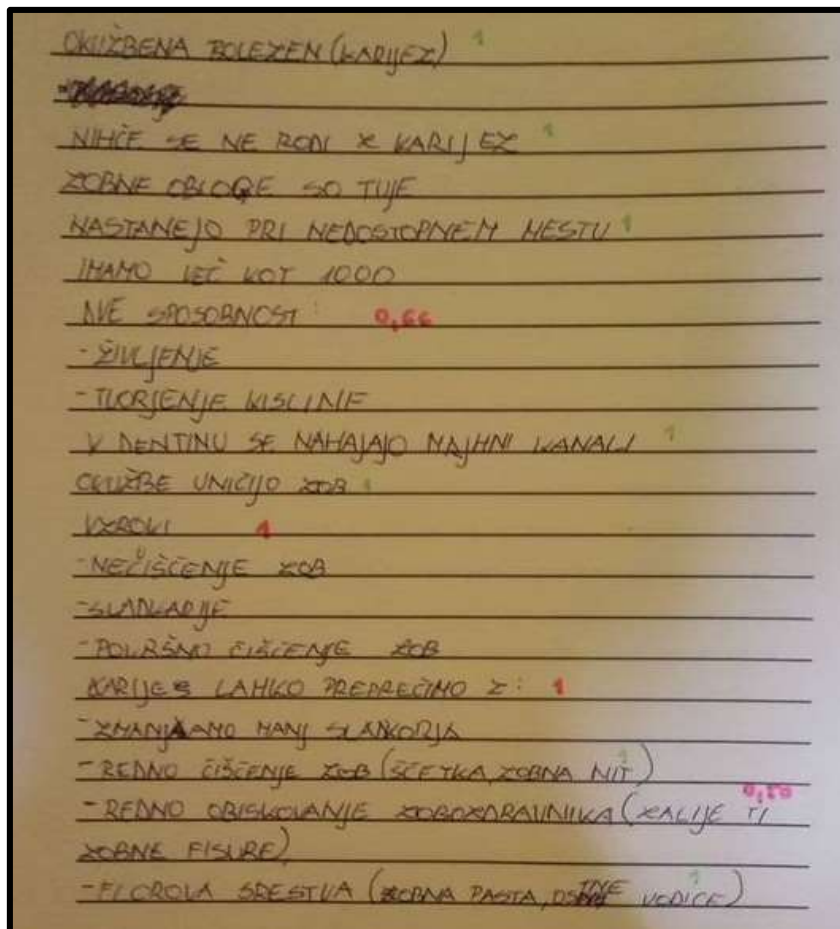 OKUŽBENA BOLEZEN (KARIJEZ) 1
NIHČE SE NE RODI Z KARIJEZ 1
ZOBNE OBLOGE SO TUJE
NASTANEJO PRI NEDOSTOPNEM MESTU 1
IMAMO VEČ KOT 1000
DVE SPOSOBNOST: 0,66
- ŽIVLJENJE
- TVORJENJE KISLINE
V DENTINU SE NAHAJAJO MAJHNI KANALI 1
OKUŽBE UNIČIJO ZOB 1
VZROKI 1
- NEČIŠČENJE ZOB
- SLADKARIJE
- POVRŠNO ČIŠČENJE ZOB
KARIJES LAHKO PREPREČIMO Z: 1
- ZMANJAMO MANJ SLANKORJA
- REDNO ČIŠČENJE ZOB (ŠČETKA, ZOBNA NIT) 1
- REDNO OBISKOVANJE ZOBOZDRAVNIKA (ZALIJE TI 0,50
ZOBNE FISURE)
- FLOROVA SRESTVA (ZOBNA PASTA, VODICE) 1